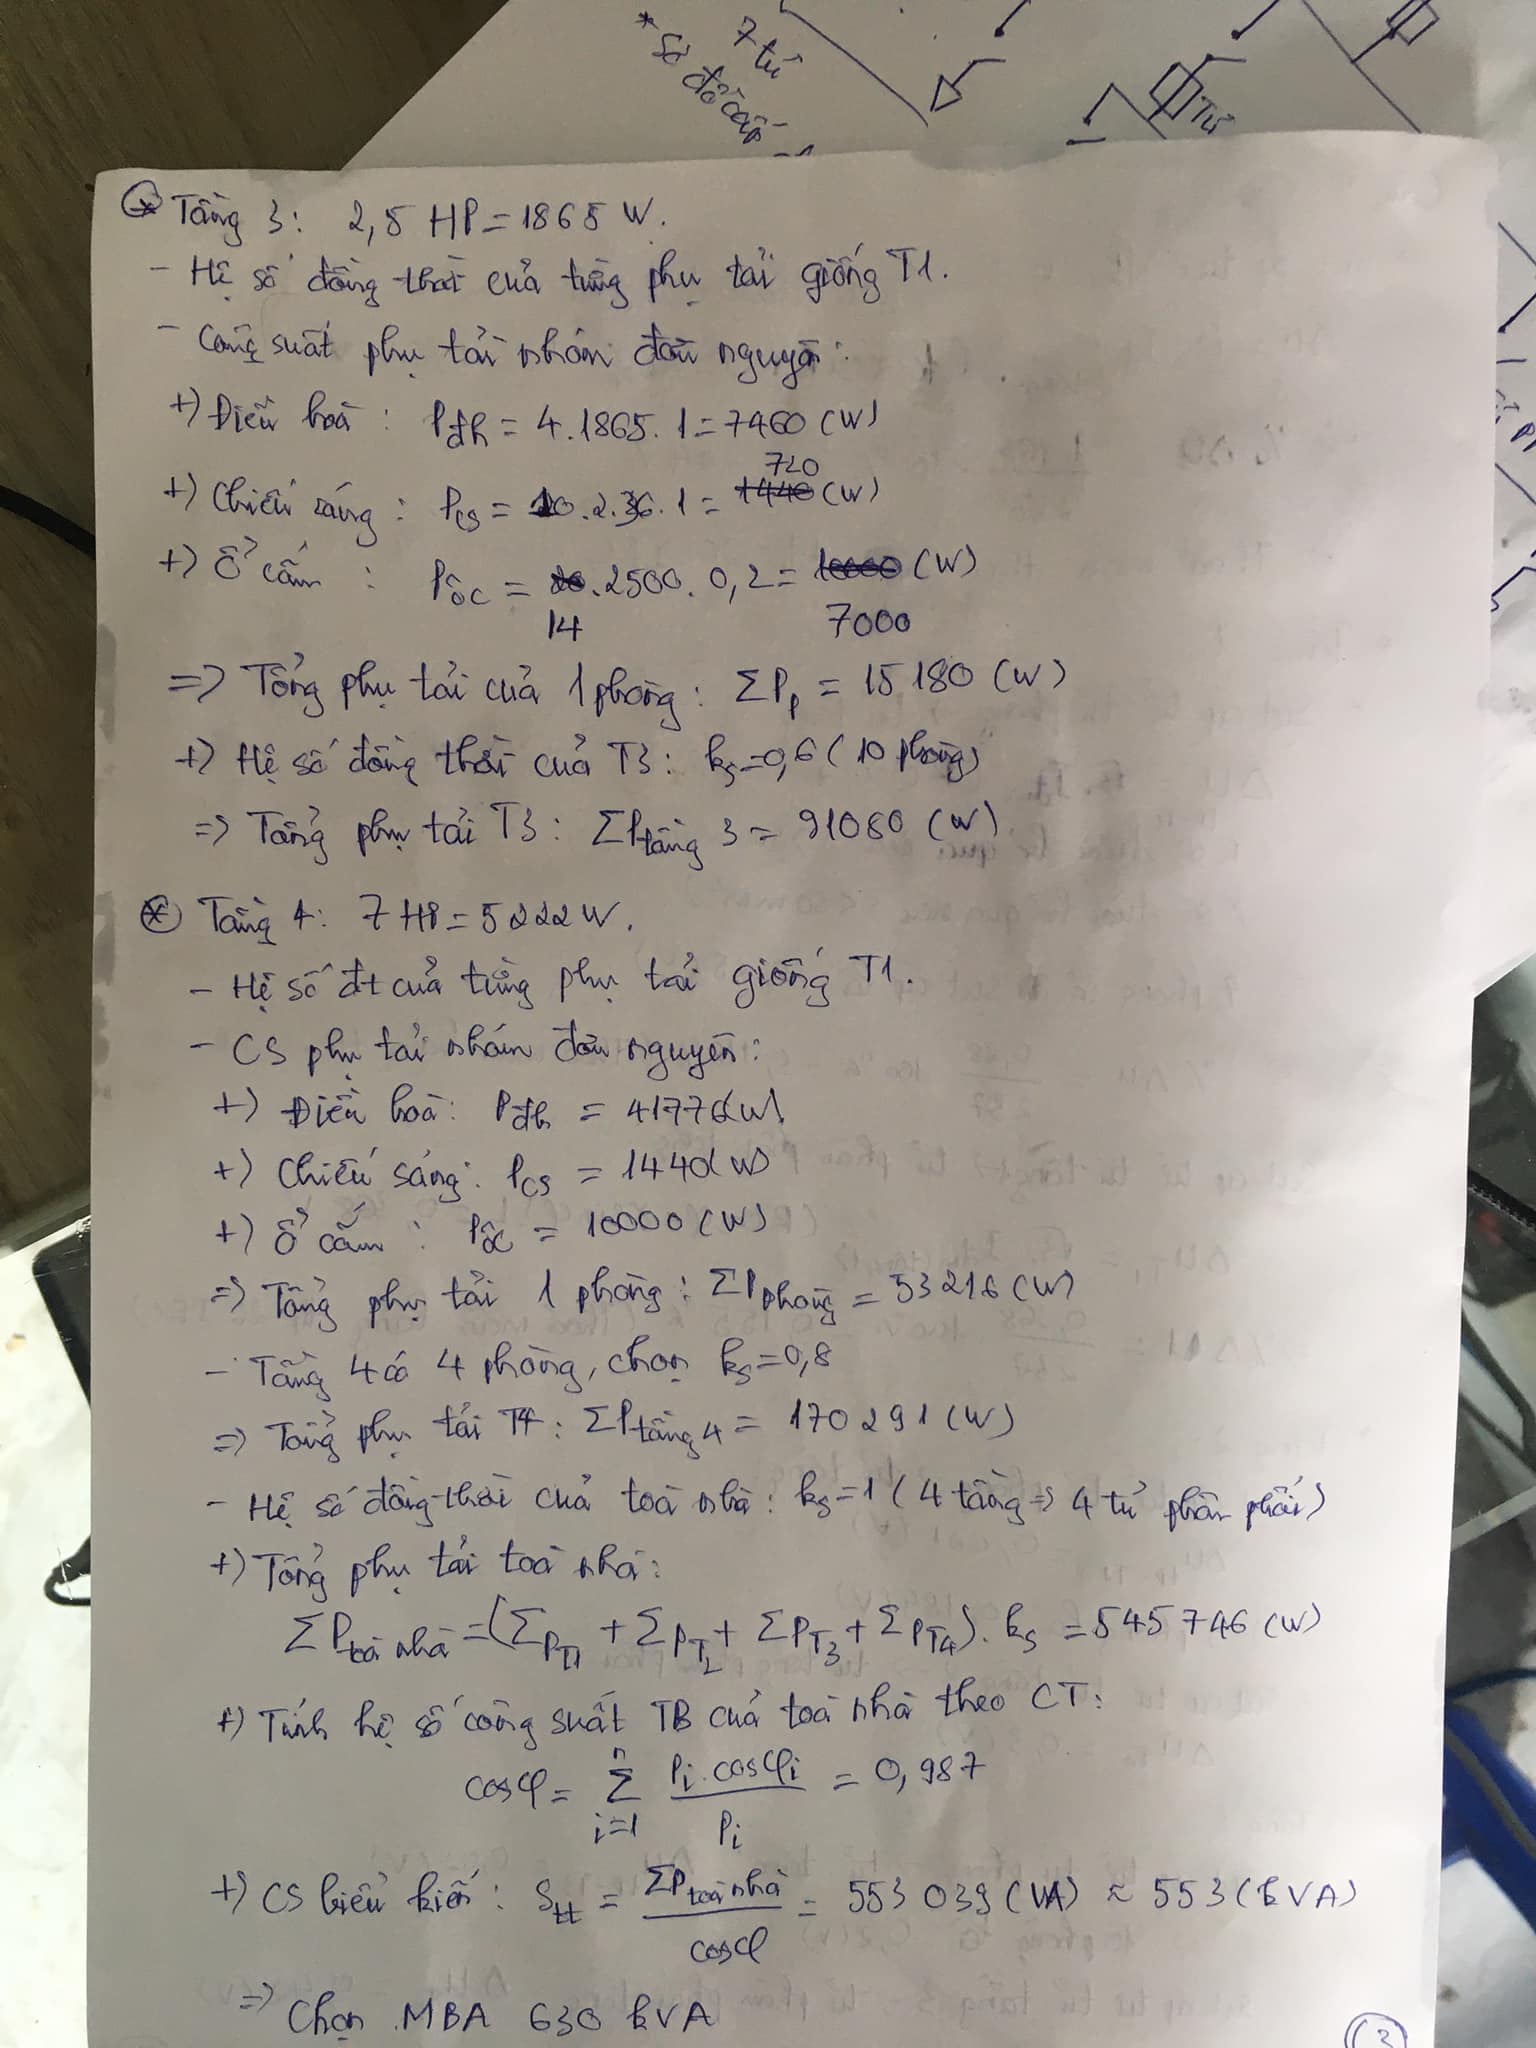 * Sơ đồ cấp
7 tủ
Tủ
⊛ Tầng 3: 2,5 HP = 1865 W.
- Hệ số đồng thời của từng phụ tải giống T1.
- Công suất phụ tải nhóm đầu nguyện:
+) Điều hoà: Pđh = 4.1865.1 = 7460 (W)
720
+) Chiếu sáng: Pcs = 10.2.36.1 = 1440 (W)
+) Ổ cắm: Pôc = 20.2500.0,2 = 10000 (W)
14 7000
=> Tổng phụ tải của 1 phòng: ΣPp = 15180 (W)
+) Hệ số đồng thời của T3: ks=0,6 (10 phòng)
=> Tổng phụ tải T3: ΣPtầng 3 = 91080 (W)
⊛ Tầng 4: 7 HP = 5222W.
- Hệ số đt của từng phụ tải giống T1.
- CS phụ tải nhóm đầu nguyên:
+) Điều hoà: Pđh = 41776(W)
+) Chiếu sáng: Pcs = 1440(W)
+) Ổ cắm: Pôc = 10000 (W)
=> Tổng phụ tải 1 phòng: ΣPphòng = 53216 (W)
- Tầng 4 có 4 phòng, chọn ks=0,8
=> Tổng phụ tải T4: ΣPtầng4 = 170291 (W)
- Hệ số đồng thời của toà nhà: ks=1 (4 tầng => 4 tủ phân phối)
+) Tổng phụ tải toà nhà:
ΣPtoà nhà = (ΣPT1 + ΣPT2 + ΣPT3 + ΣPT4). ks = 545746 (W)
+) Tính hệ số công suất TB của toà nhà theo CT:
cosφ = Σ(i=1→n) Pi.cosφi / Pi = 0,987
+) CS biểu kiến: Stt = ΣPtoà nhà / cosφ = 553039 (VA) ≈ 553 (kVA)
=> Chọn MBA 630 kVA
(3)